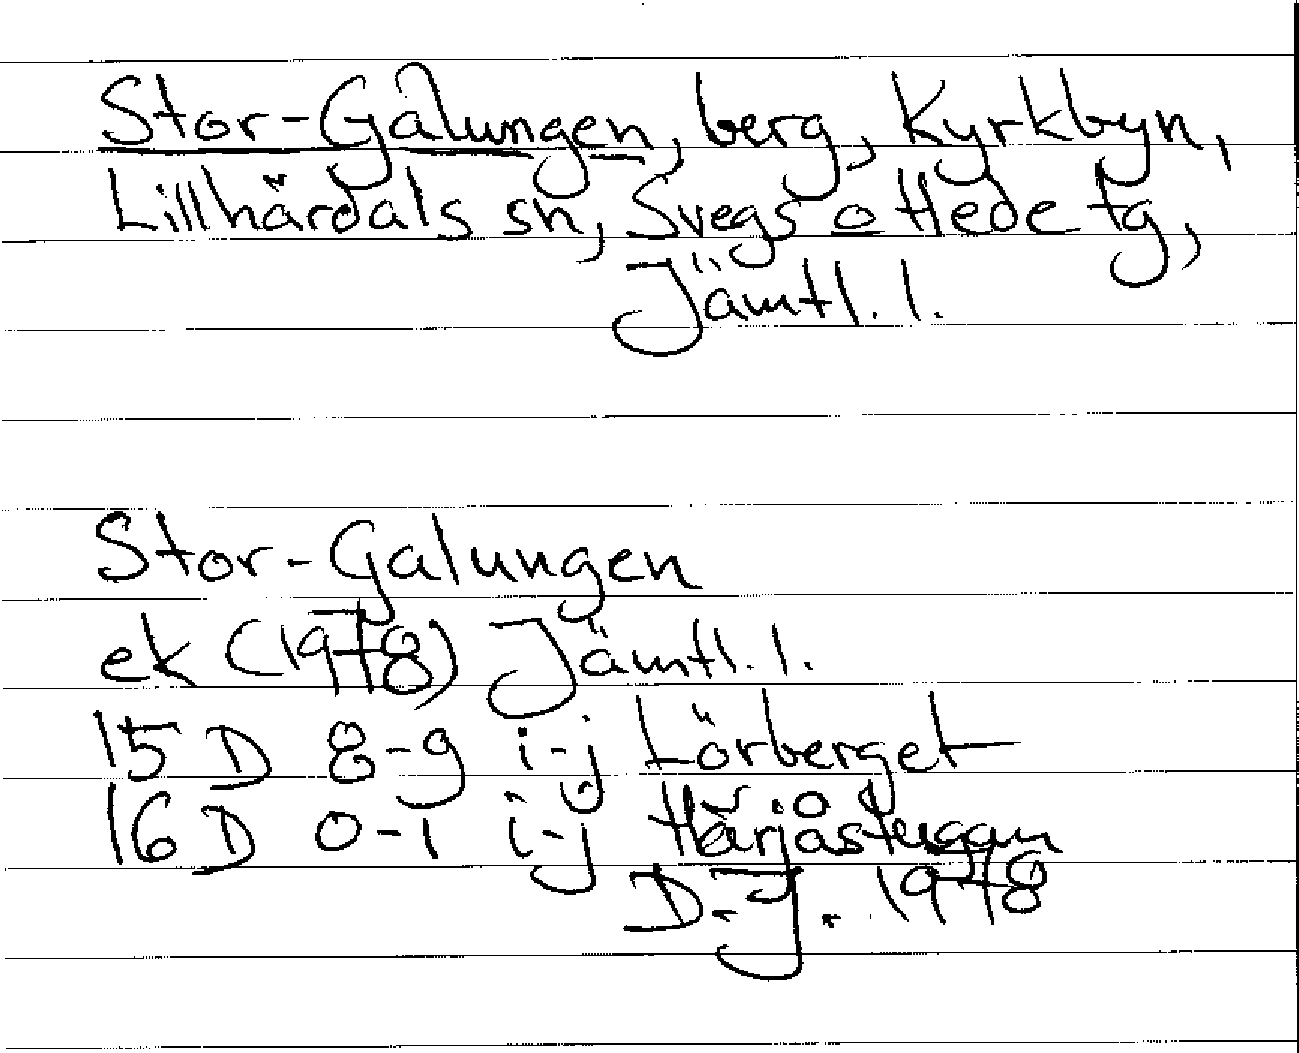 Stor-Galungen, berg, Kyrkbyn,
Lillhärdals sn, Svegs o Hede tg,
Jämtl. l.
Stor-Galungen
ek (1978) Jämtl. l.
15 D 8-9 i-j Lörberget
16 D 0-1 i-j Härjåstugan
D. J. 1978